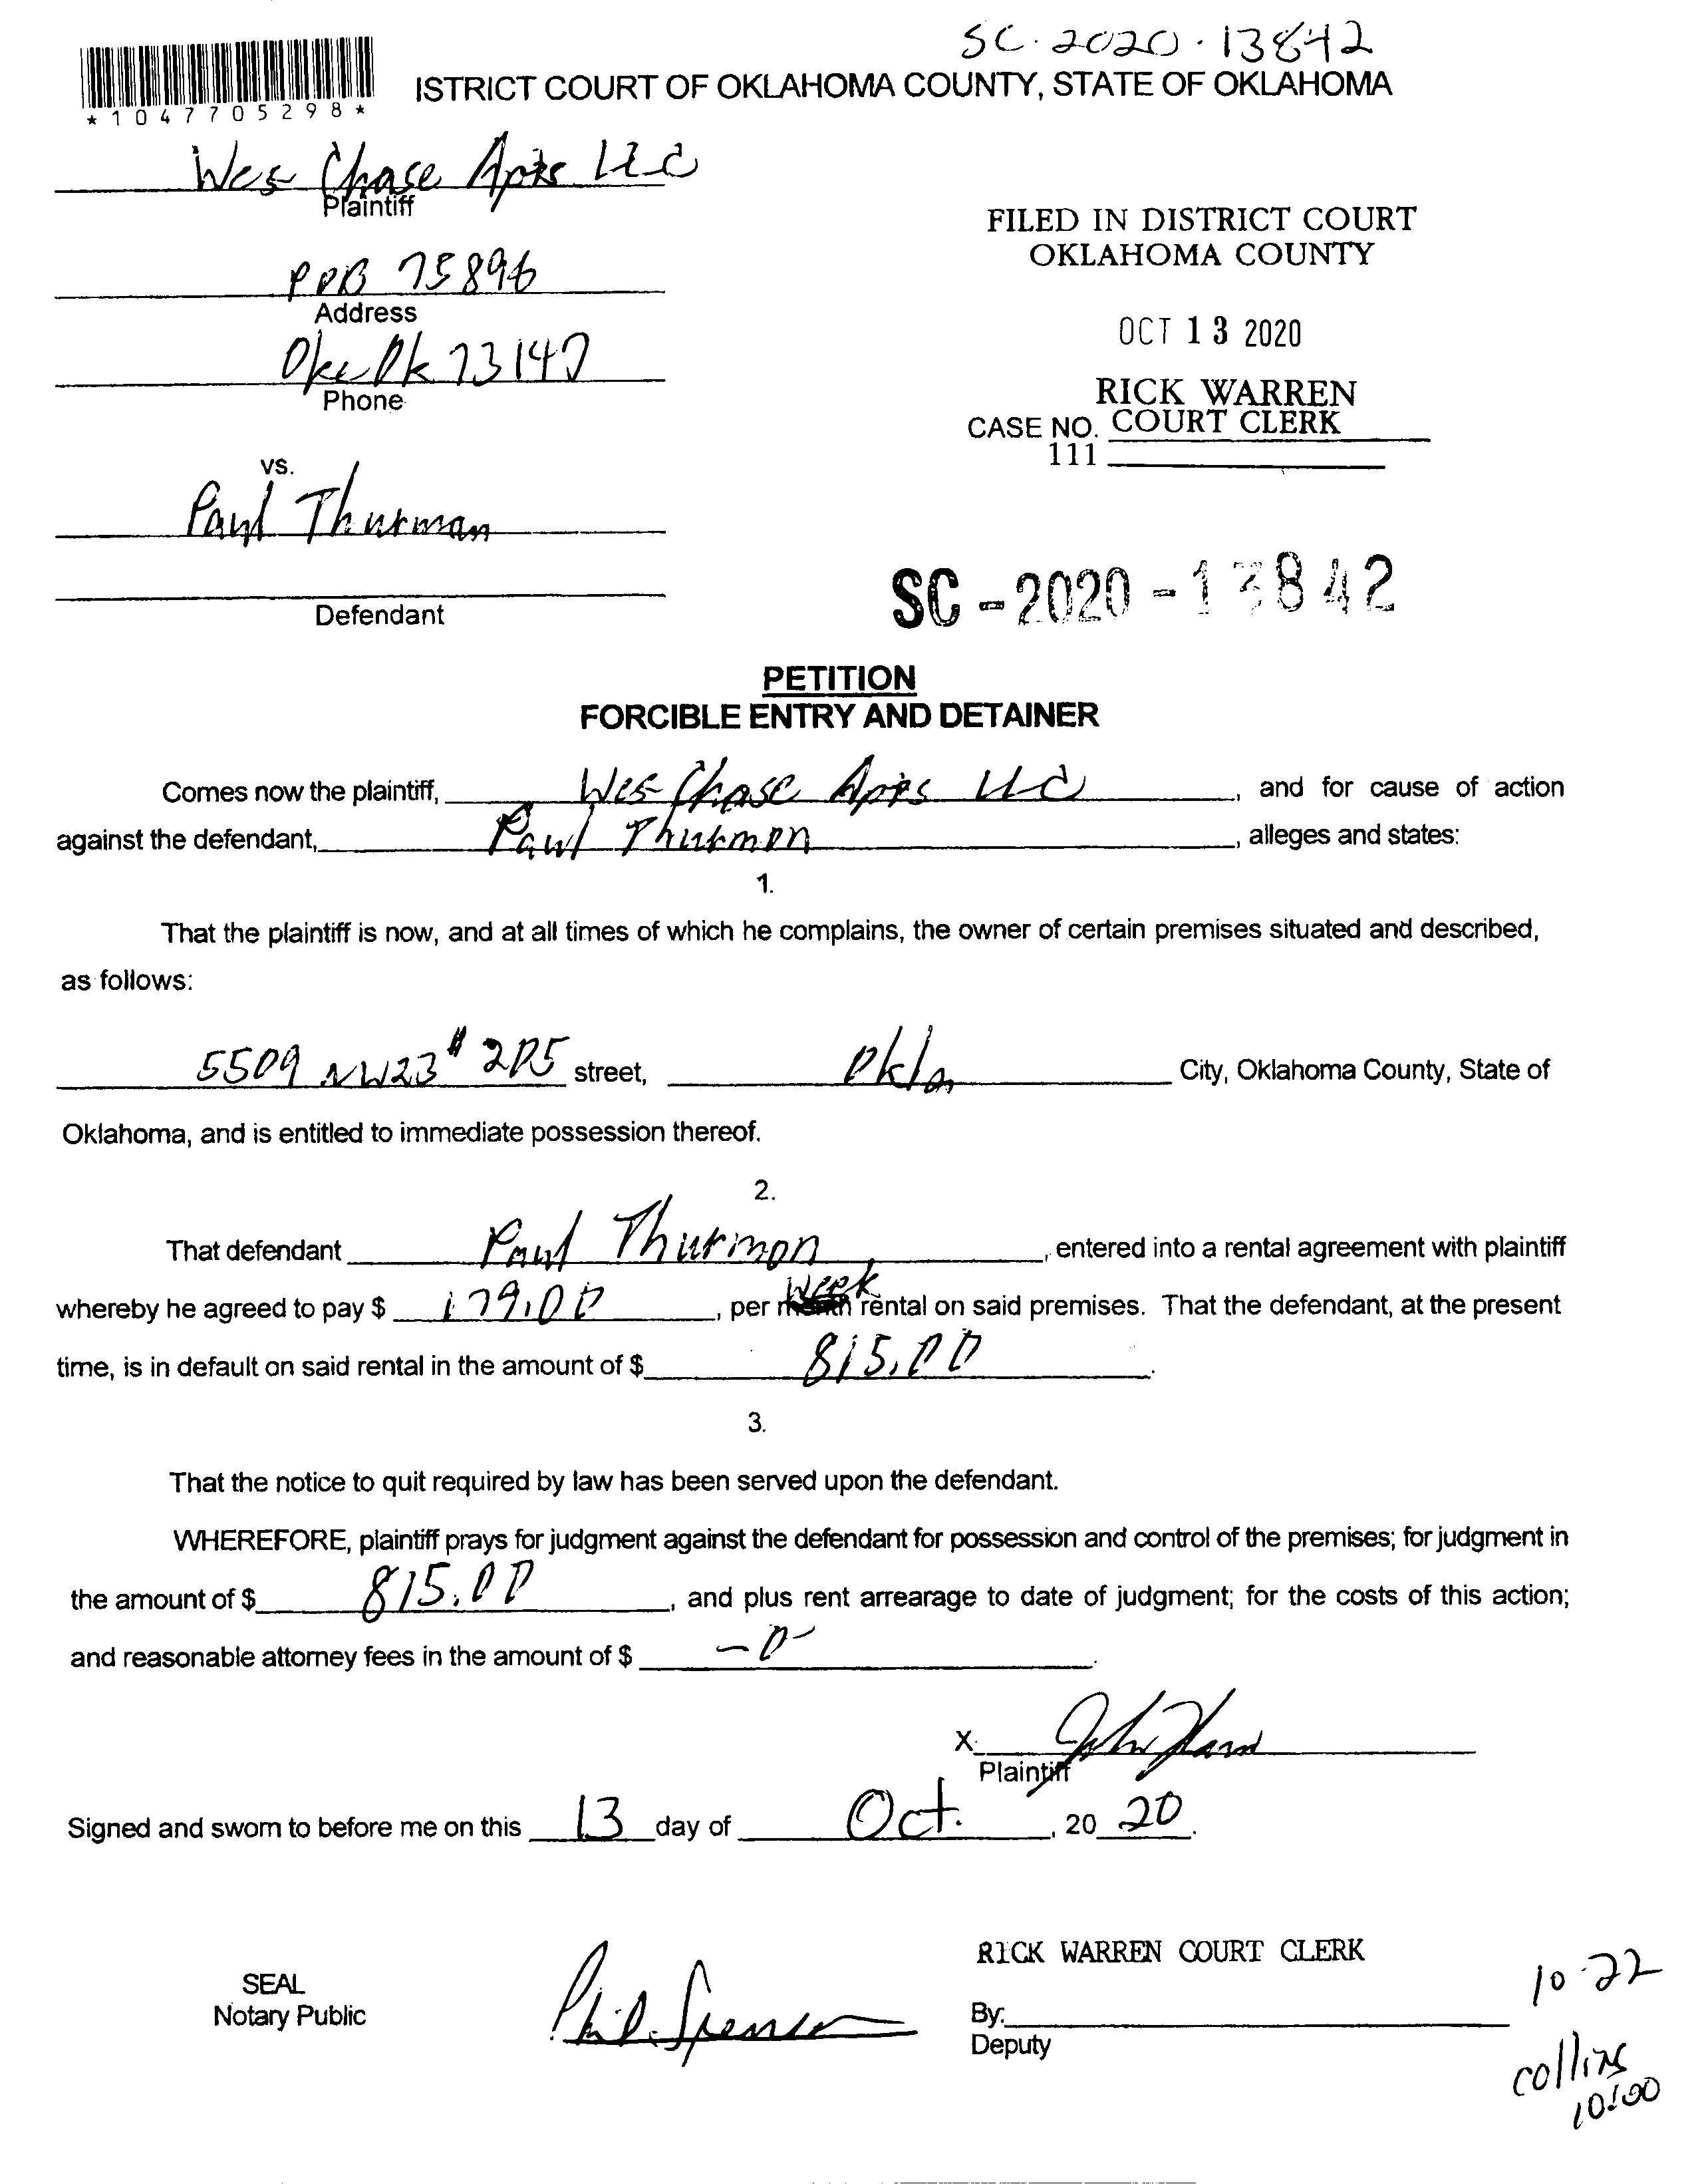 SC-2020-13842
*1047705298*
ISTRICT COURT OF OKLAHOMA COUNTY, STATE OF OKLAHOMA
Wes Chase Apts LLC
Plaintiff
POB 75896
Address
Okc Ok 73147
Phone
FILED IN DISTRICT COURT
OKLAHOMA COUNTY
OCT 13 2020
RICK WARREN
CASE NO. COURT CLERK
111
vs.
Paul Thurman
Defendant
SC-2020-13842
PETITION
FORCIBLE ENTRY AND DETAINER
Comes now the plaintiff, Wes Chase Apts LLC, and for cause of action
against the defendant, Paul Thurman, alleges and states:
1.
That the plaintiff is now, and at all times of which he complains, the owner of certain premises situated and described,
as follows:
5509 NW23 # 205 street, Okla City, Oklahoma County, State of
Oklahoma, and is entitled to immediate possession thereof.
2.
That defendant Paul Thurman, entered into a rental agreement with plaintiff
whereby he agreed to pay $ 179.00, per month week rental on said premises. That the defendant, at the present
time, is in default on said rental in the amount of $ 815.00.
3.
That the notice to quit required by law has been served upon the defendant.
WHEREFORE, plaintiff prays for judgment against the defendant for possession and control of the premises; for judgment in
the amount of $ 815.00, and plus rent arrearage to date of judgment; for the costs of this action;
and reasonable attorney fees in the amount of $ -0-.
X
Plaintiff
Signed and sworn to before me on this 13 day of Oct., 20 20.
RICK WARREN COURT CLERK
SEAL
Notary Public
By:
Deputy
10-22
collins
10:00